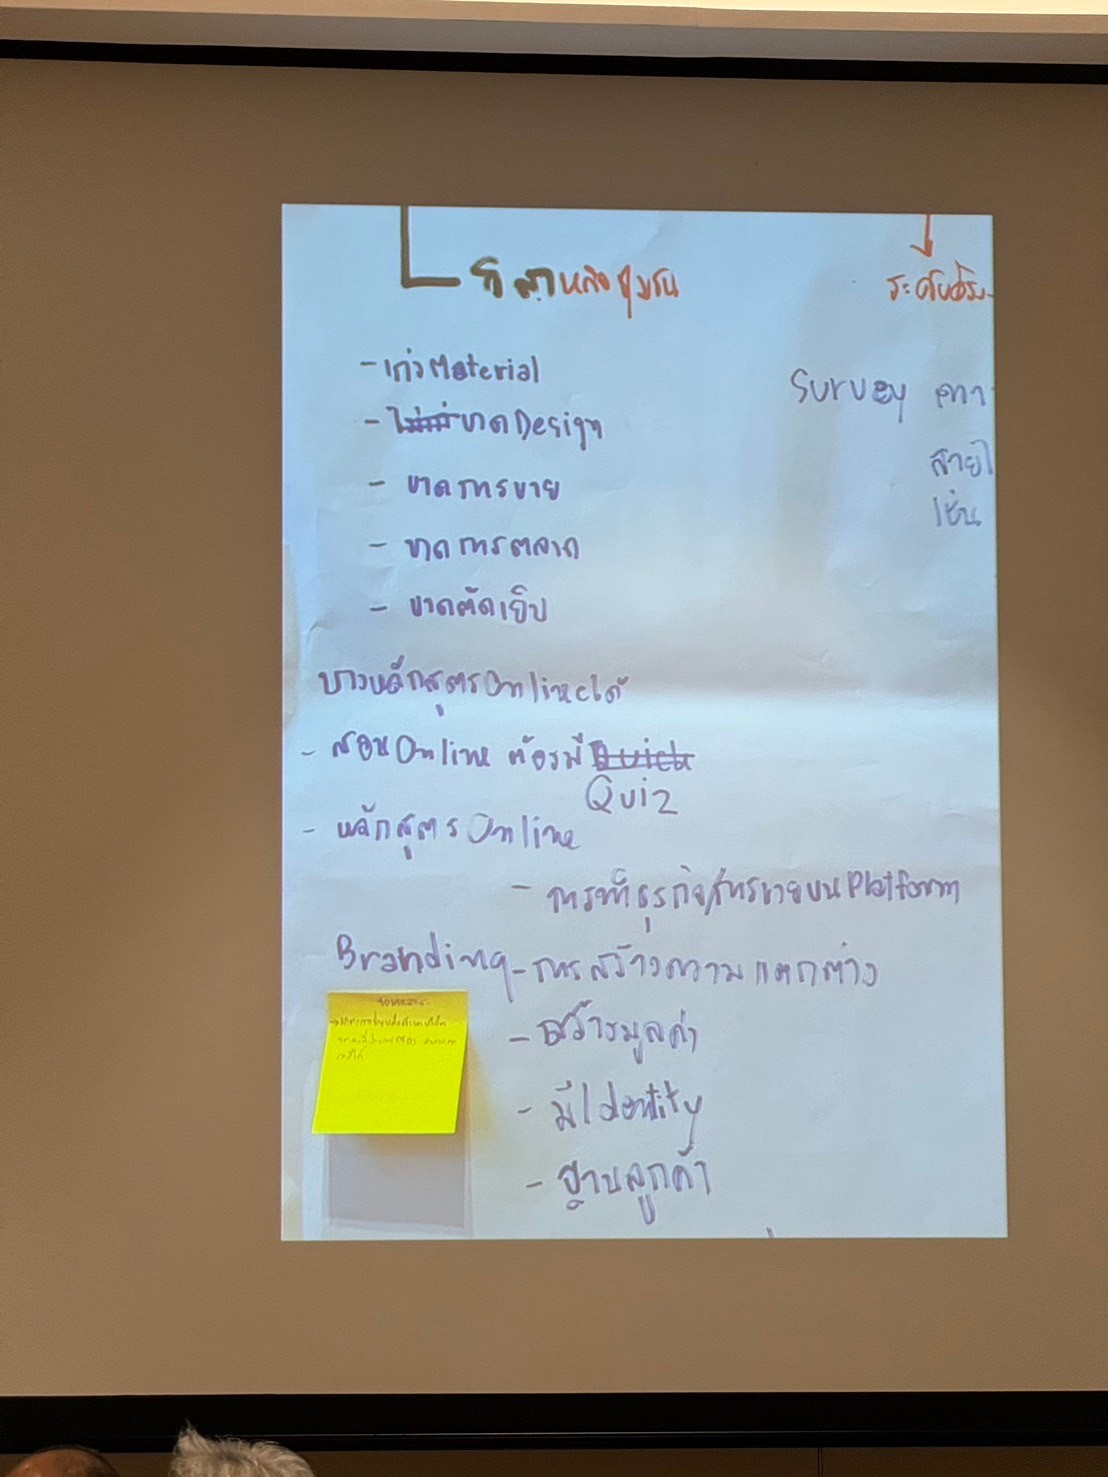 วิสาหกิจชุมชน
- เก่ง Material
- ขาด Design
- ขาดการขาย
- ขาดการตลาด
- ขาดตัดเย็บ
Survey
สาย
เช่น
บางหลักสูตร Online ได้
- สอน Online ต้องมี Quick
Quiz
- หลักสูตร Online
- การทำธุรกิจ/การขายบน Platform
Branding - การสร้างความแตกต่าง
- สร้างมูลค่า
- มี Identity
- ฐานลูกค้า